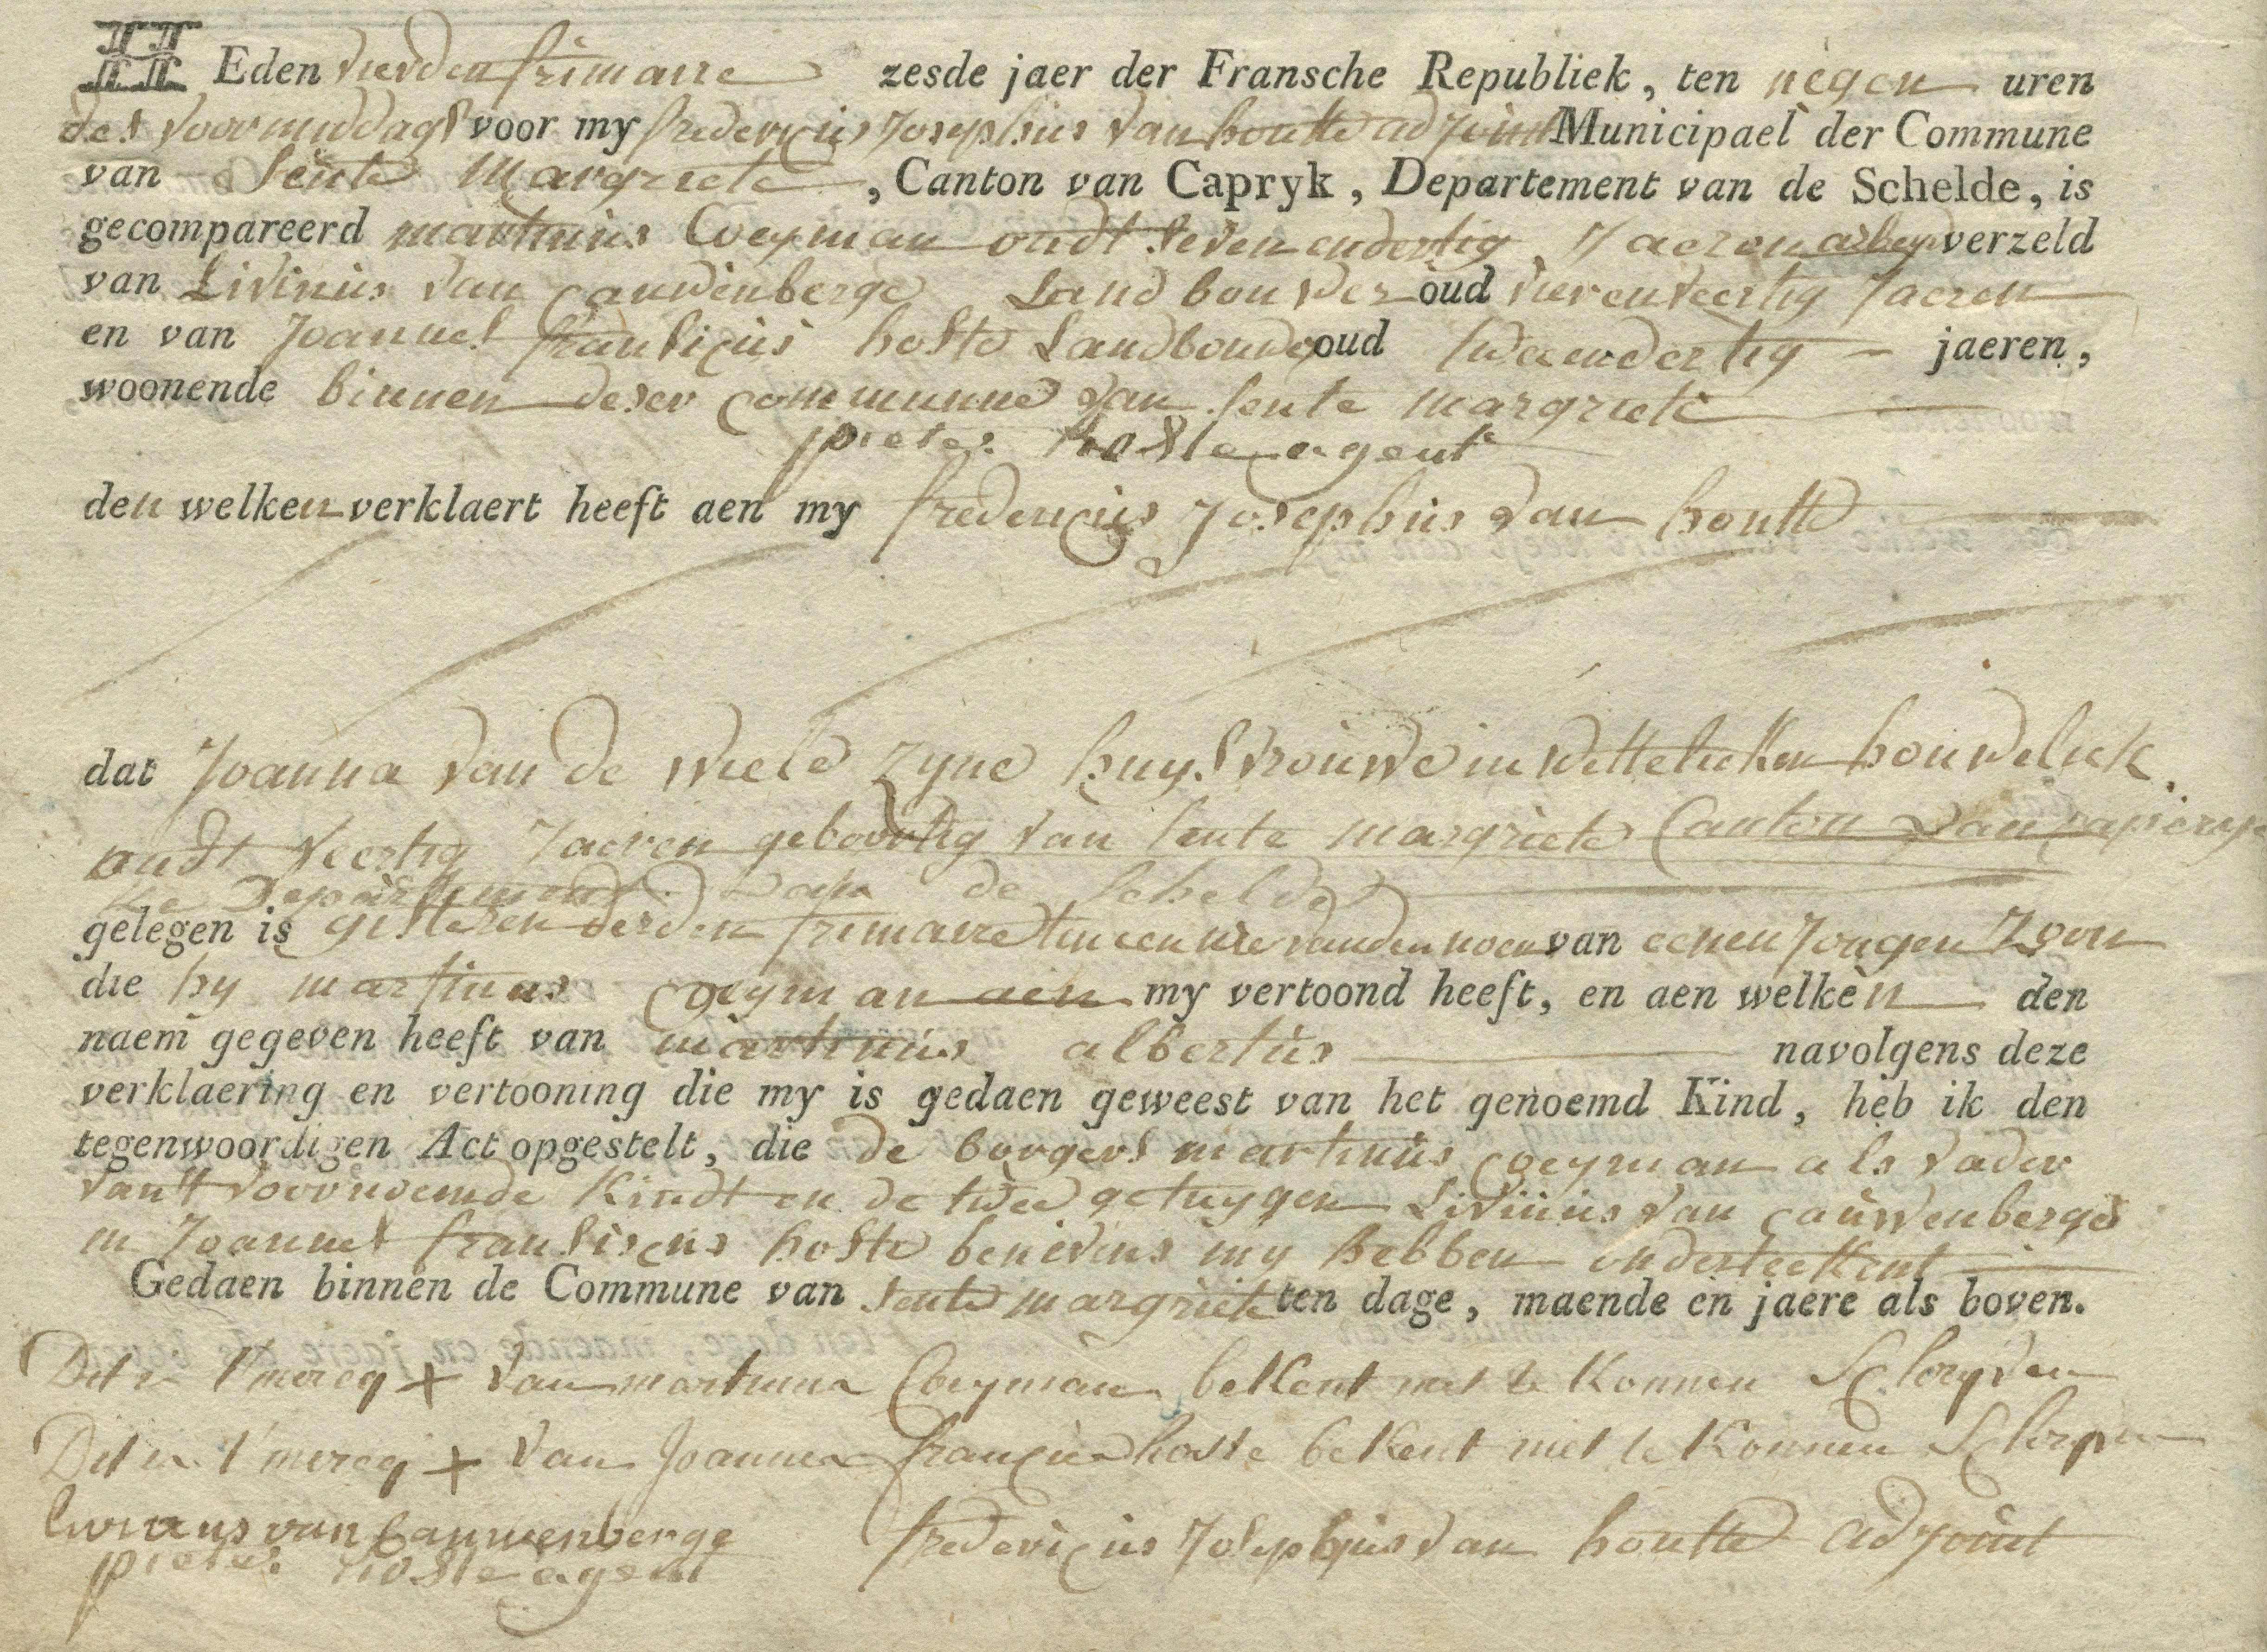 HEden vierden frimaire zesde jaer der Fransche Republiek, ten negen uren
des voormiddags voor my fredericus Josephus van houtte adjoint Municipael der Commune
van Sente Margriete, Canton van Capryk, Departement van de Schelde, is
gecompareerd martinus Coeyman oudt seven en dertig Jaeren verzeld
van Livinus van Cauwenberge Landbouwer oud vierenveertig Jaeren
en van Joannes fransicus hoste Landbouwer oud tweendertig – jaeren,
woonende binnen deser communne van sente margriete
pieter hoste agent
den welken verklaert heeft aen my fredericus Josephus van houtte
dat Joanna van de Wiele zyne huysvrouwe in wettelieken houwelick
oudt veertig Jaeren geboortig van sente margriete Canton van
Departement van de Schelde
gelegen is gisteren derden frimaire ten een ure van den noen van eenen Jongen Zoon
die hy martinus Coeyman aen my vertoond heeft, en aen welken den
naem gegeven heeft van martinus albertus navolgens deze
verklaering en vertooning die my is gedaen geweest van het genoemd Kind, heb ik den
tegenwoordigen Act opgestelt, die de borgers martinus Coeyman als vader
van't voornoemde Kindt en de twee getuygen Livinus van Cauwenberge
en Joannes fransiscus hoste benevens my hebben onderteekent
Gedaen binnen de Commune van sente margriete ten dage, maende en jaere als boven.
Dit is t'mercq + van martinus Coeyman bekent niet te konnen Schryven
Dit is t'mercq + van Joannes francies hoste bekent niet te konnen Schryven
livinus van Cauwenberge fredericus Josephus van houtte adjoint
pieter hoste agent